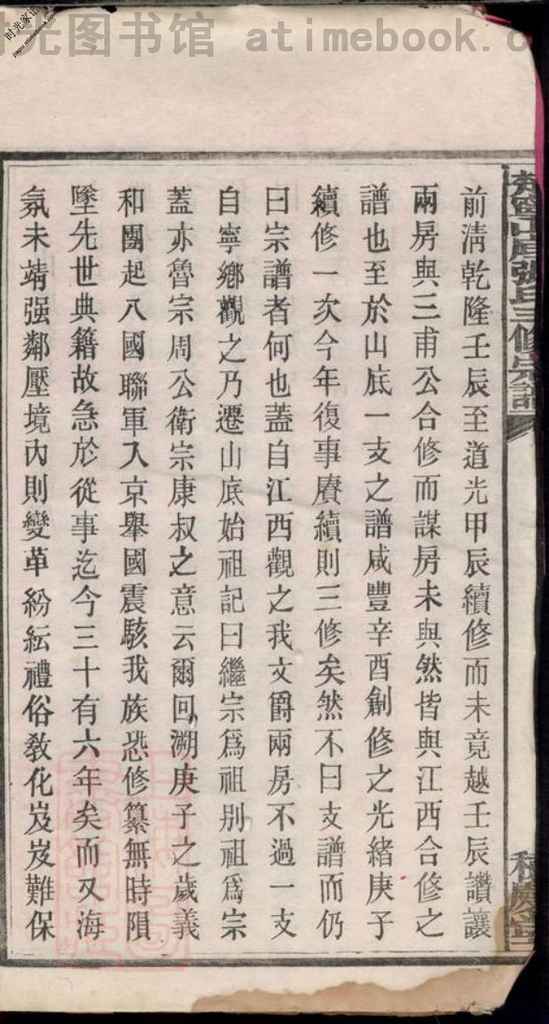 时光图书馆 atimebook.c
前清乾隆壬辰至道光甲辰續修而未竟越壬辰讚讓
兩房與三甫公合修而謀房未與然皆與江西合修之
譜也至於山底一支之譜咸豐辛酉創修之光緒庚子
續修一次今年復事賡續則三修矣然不曰支譜而仍
曰宗譜者何也蓋自江西觀之我文爵兩房不過一支
自寧鄉觀之乃遷山底始祖記曰繼宗爲祖別祖爲宗
蓋亦魯宗周公衛宗康叔之意云爾回溯庚子之歲義
和團起八國聯軍入京舉國震駭我族恐修纂無時隕
墜先世典籍故急於從事迄今三十有六年矣而又海
氛未靖强鄰壓境內則變革紛紜禮俗敎化岌岌難保
山底張氏三修宗譜